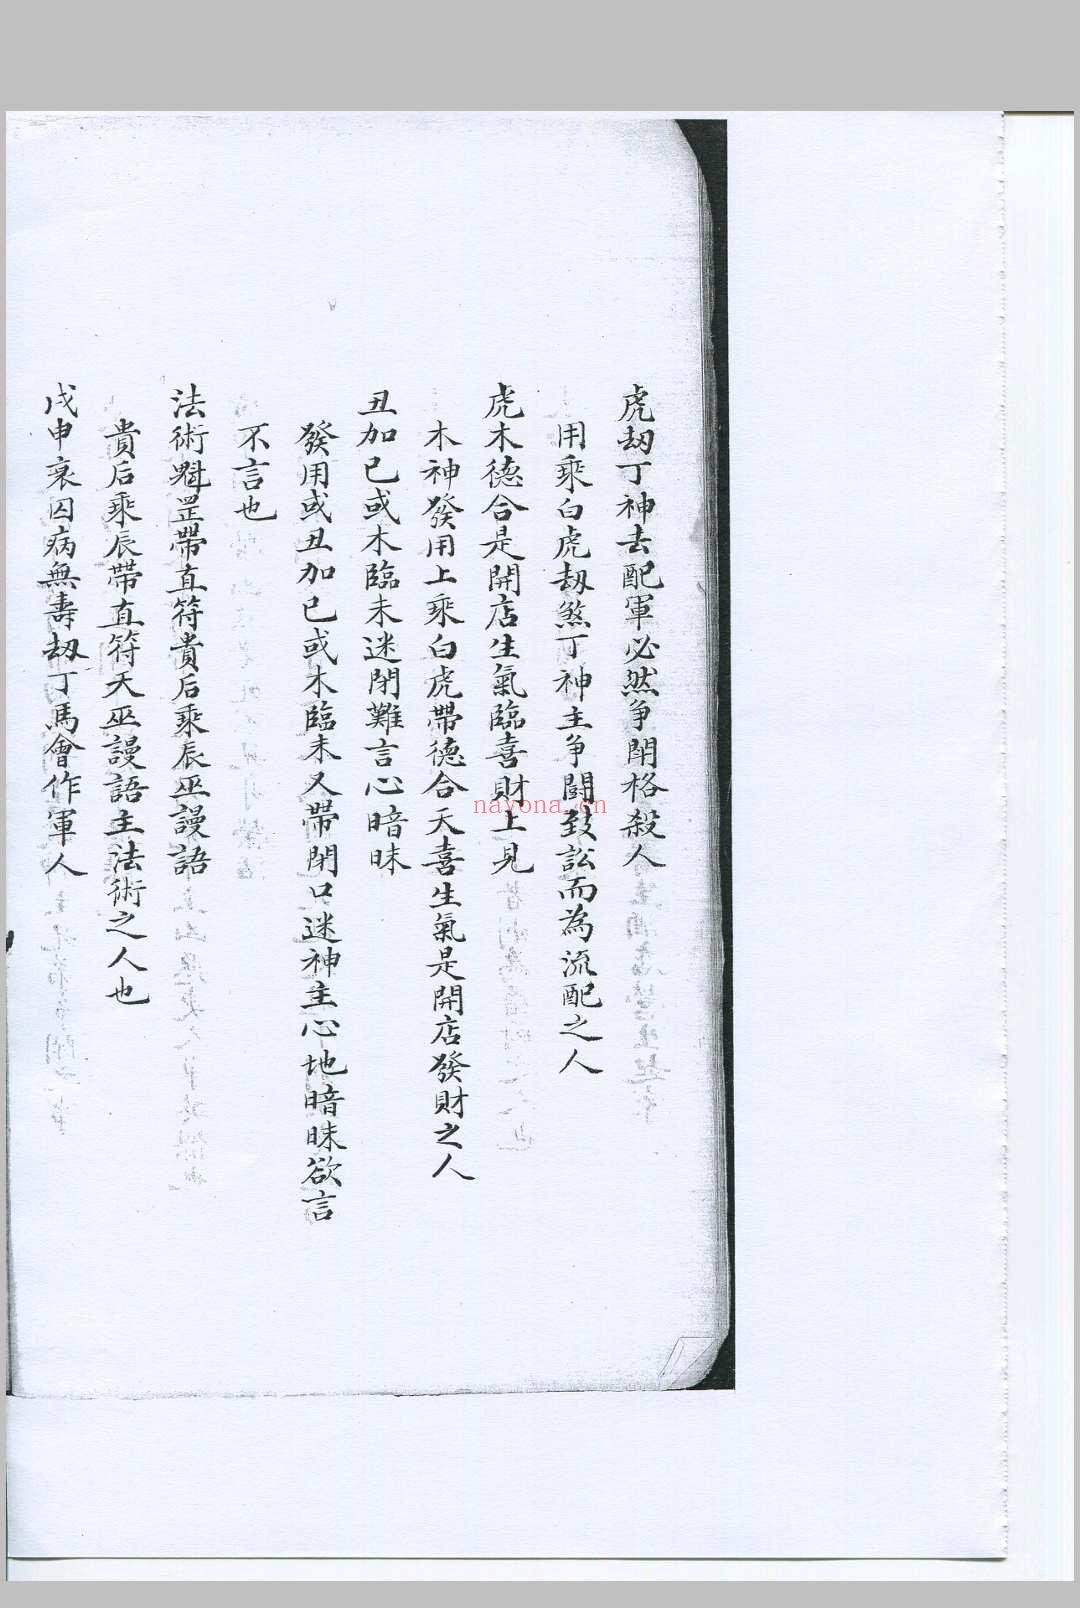 虎刼丁神去配軍必然争鬧格殺人
用乘白虎刼煞丁神主争鬪致訟而為流配之人
虎木德合是開店生氣臨喜財上見
木神發用上乘白虎帶德合天喜生氣是開店發財之人
丑加巳或木臨未迷閉難言心暗昧
發用或丑加巳或木臨未又帶閉口迷神主心地暗昧欲言
不言也
法術魁罡帶直符貴后乘辰巫謾語
貴后乘辰帶直符天巫謾語主法術之人也
戌申衰囚病無壽刼丁馬會作軍人
nayona.cn